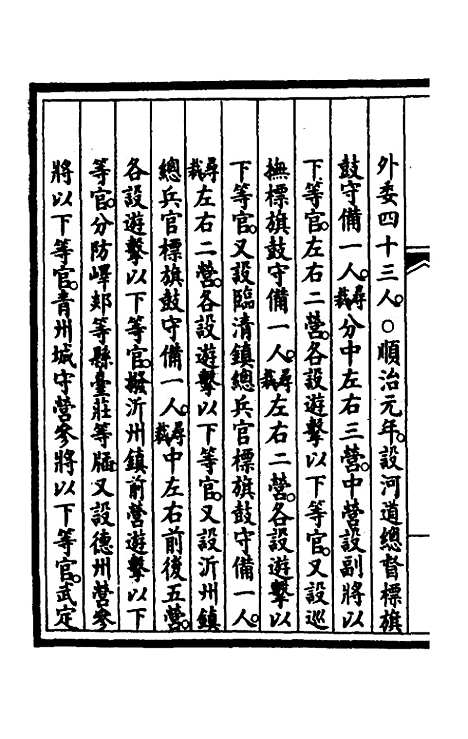 外委四十三人。○順治元年。設河道總督標旗
鼓守備一人。尋裁分中左右三營。中營設副將以
下等官。左右二營。各設遊擊以下等官。又設巡
撫標旗鼓守備一人。尋裁左右二營。各設遊擊以
下等官。又設臨清鎮總兵官標旗鼓守備一人。
尋裁左右二營。各設遊擊以下等官。又設沂州鎮
總兵官標旗鼓守備一人。尋裁中左右前後五營。
各設遊擊以下等官。撥沂州鎮前營遊擊以下
等官。分防嶧郯等縣臺莊等牐。又設德州營參
將以下等官。青州城守營參將以下等官。武定